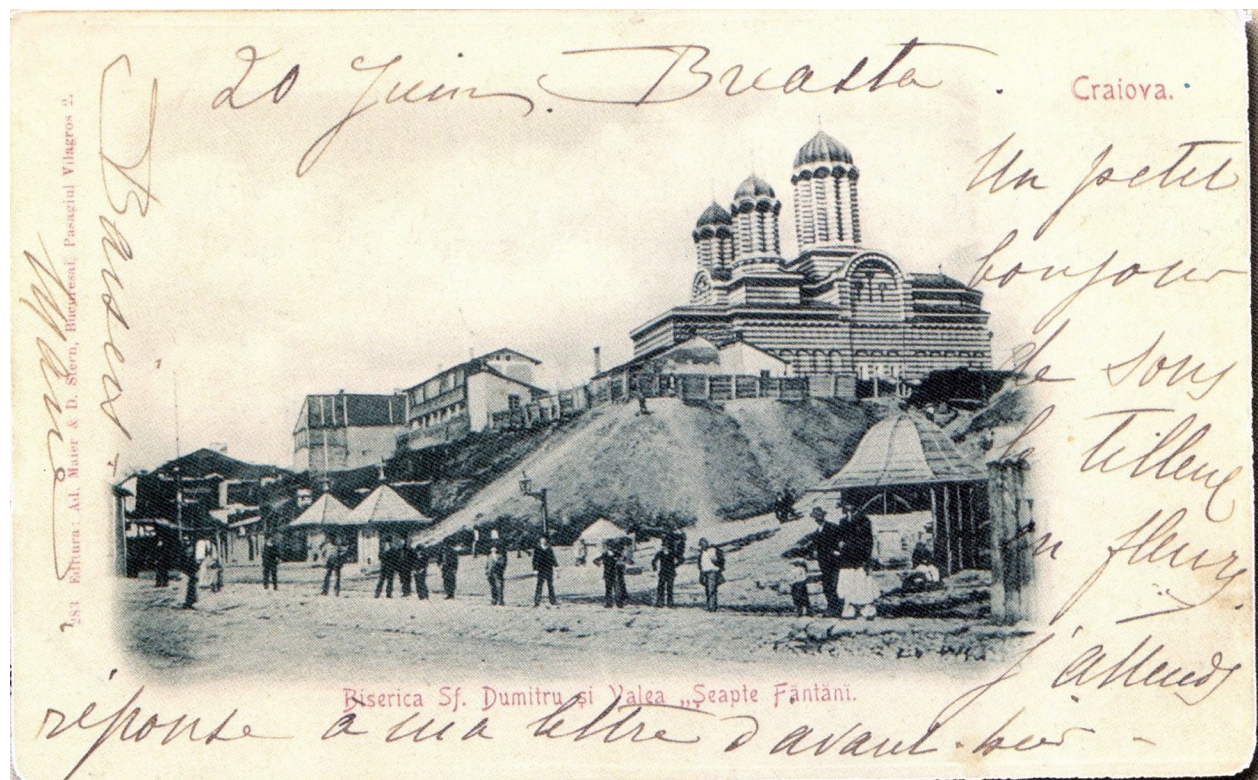 20 Juin. Breasta.
Craiova.
Un petit
bonjour
de sous
le Tilleul
en fleurs
j'attends
réponse a ma lettre d'avant-hier -
Baisers
Biserica Sf. Dumitru și Valea „Șeapte Fântâni.
283 Editura: Ad. Maier & D. Stern, Bucuresai, Pasagiul Vilagros 2.